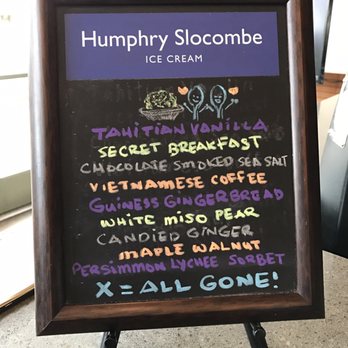 Humphry Slocombe
ICE CREAM
TAHITIAN VANILLA
SECRET BREAKFAST
CHOCOLATE SMOKED SEA SALT
VIETNAMESE COFFEE
GUINESS GINGERBREAD
WHITE MISO PEAR
CANDIED GINGER
MAPLE WALNUT
PERSIMMON LYCHEE SORBET
X = ALL GONE!